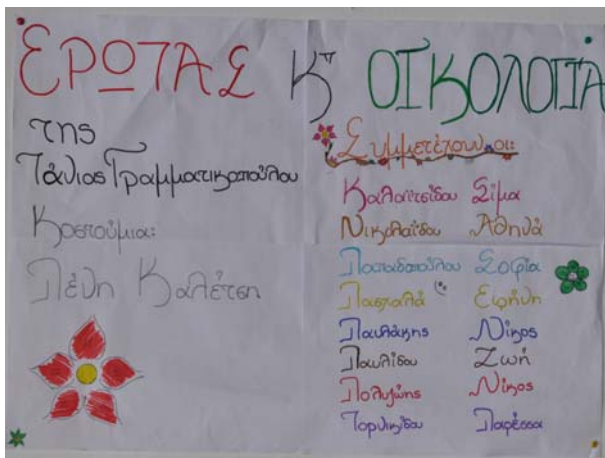 ΕΡΩΤΑΣ Κ' ΟΙΚΟΛΟΓΙΑ
της
Τάνιας Γραμματικοπούλου
Κοστούμια:
Πέπη Καλέτση
Συμμετέχουν οι:
Καλαϊτσίδου Σίμα
Νικολαΐδου Αθηνά
Παπαδοπούλου Σοφία
Πασχαλά Ειρήνη
Παυλάκης Νίκος
Παυλίδου Ζωή
Πολυζώης Νίκος
Τορνικίδου